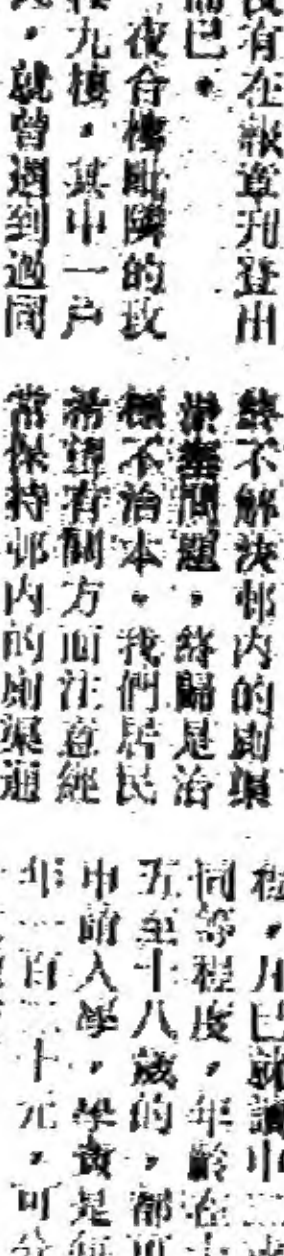 有在報章刊登出
而已。
夜合樓毗鄰的玫
九樓,其中一戶
,就曾遇到過同
終不解決邨內的廁渠
淤塞問題,終歸是治
標不治本。我們居民
希望有關方面注意經
常保持邨內的廁渠通
程,凡已就讀中三或
同等程度,年齡在十
五至十八歲的,都可
申請入學,學費是每
年一百二十元,可分